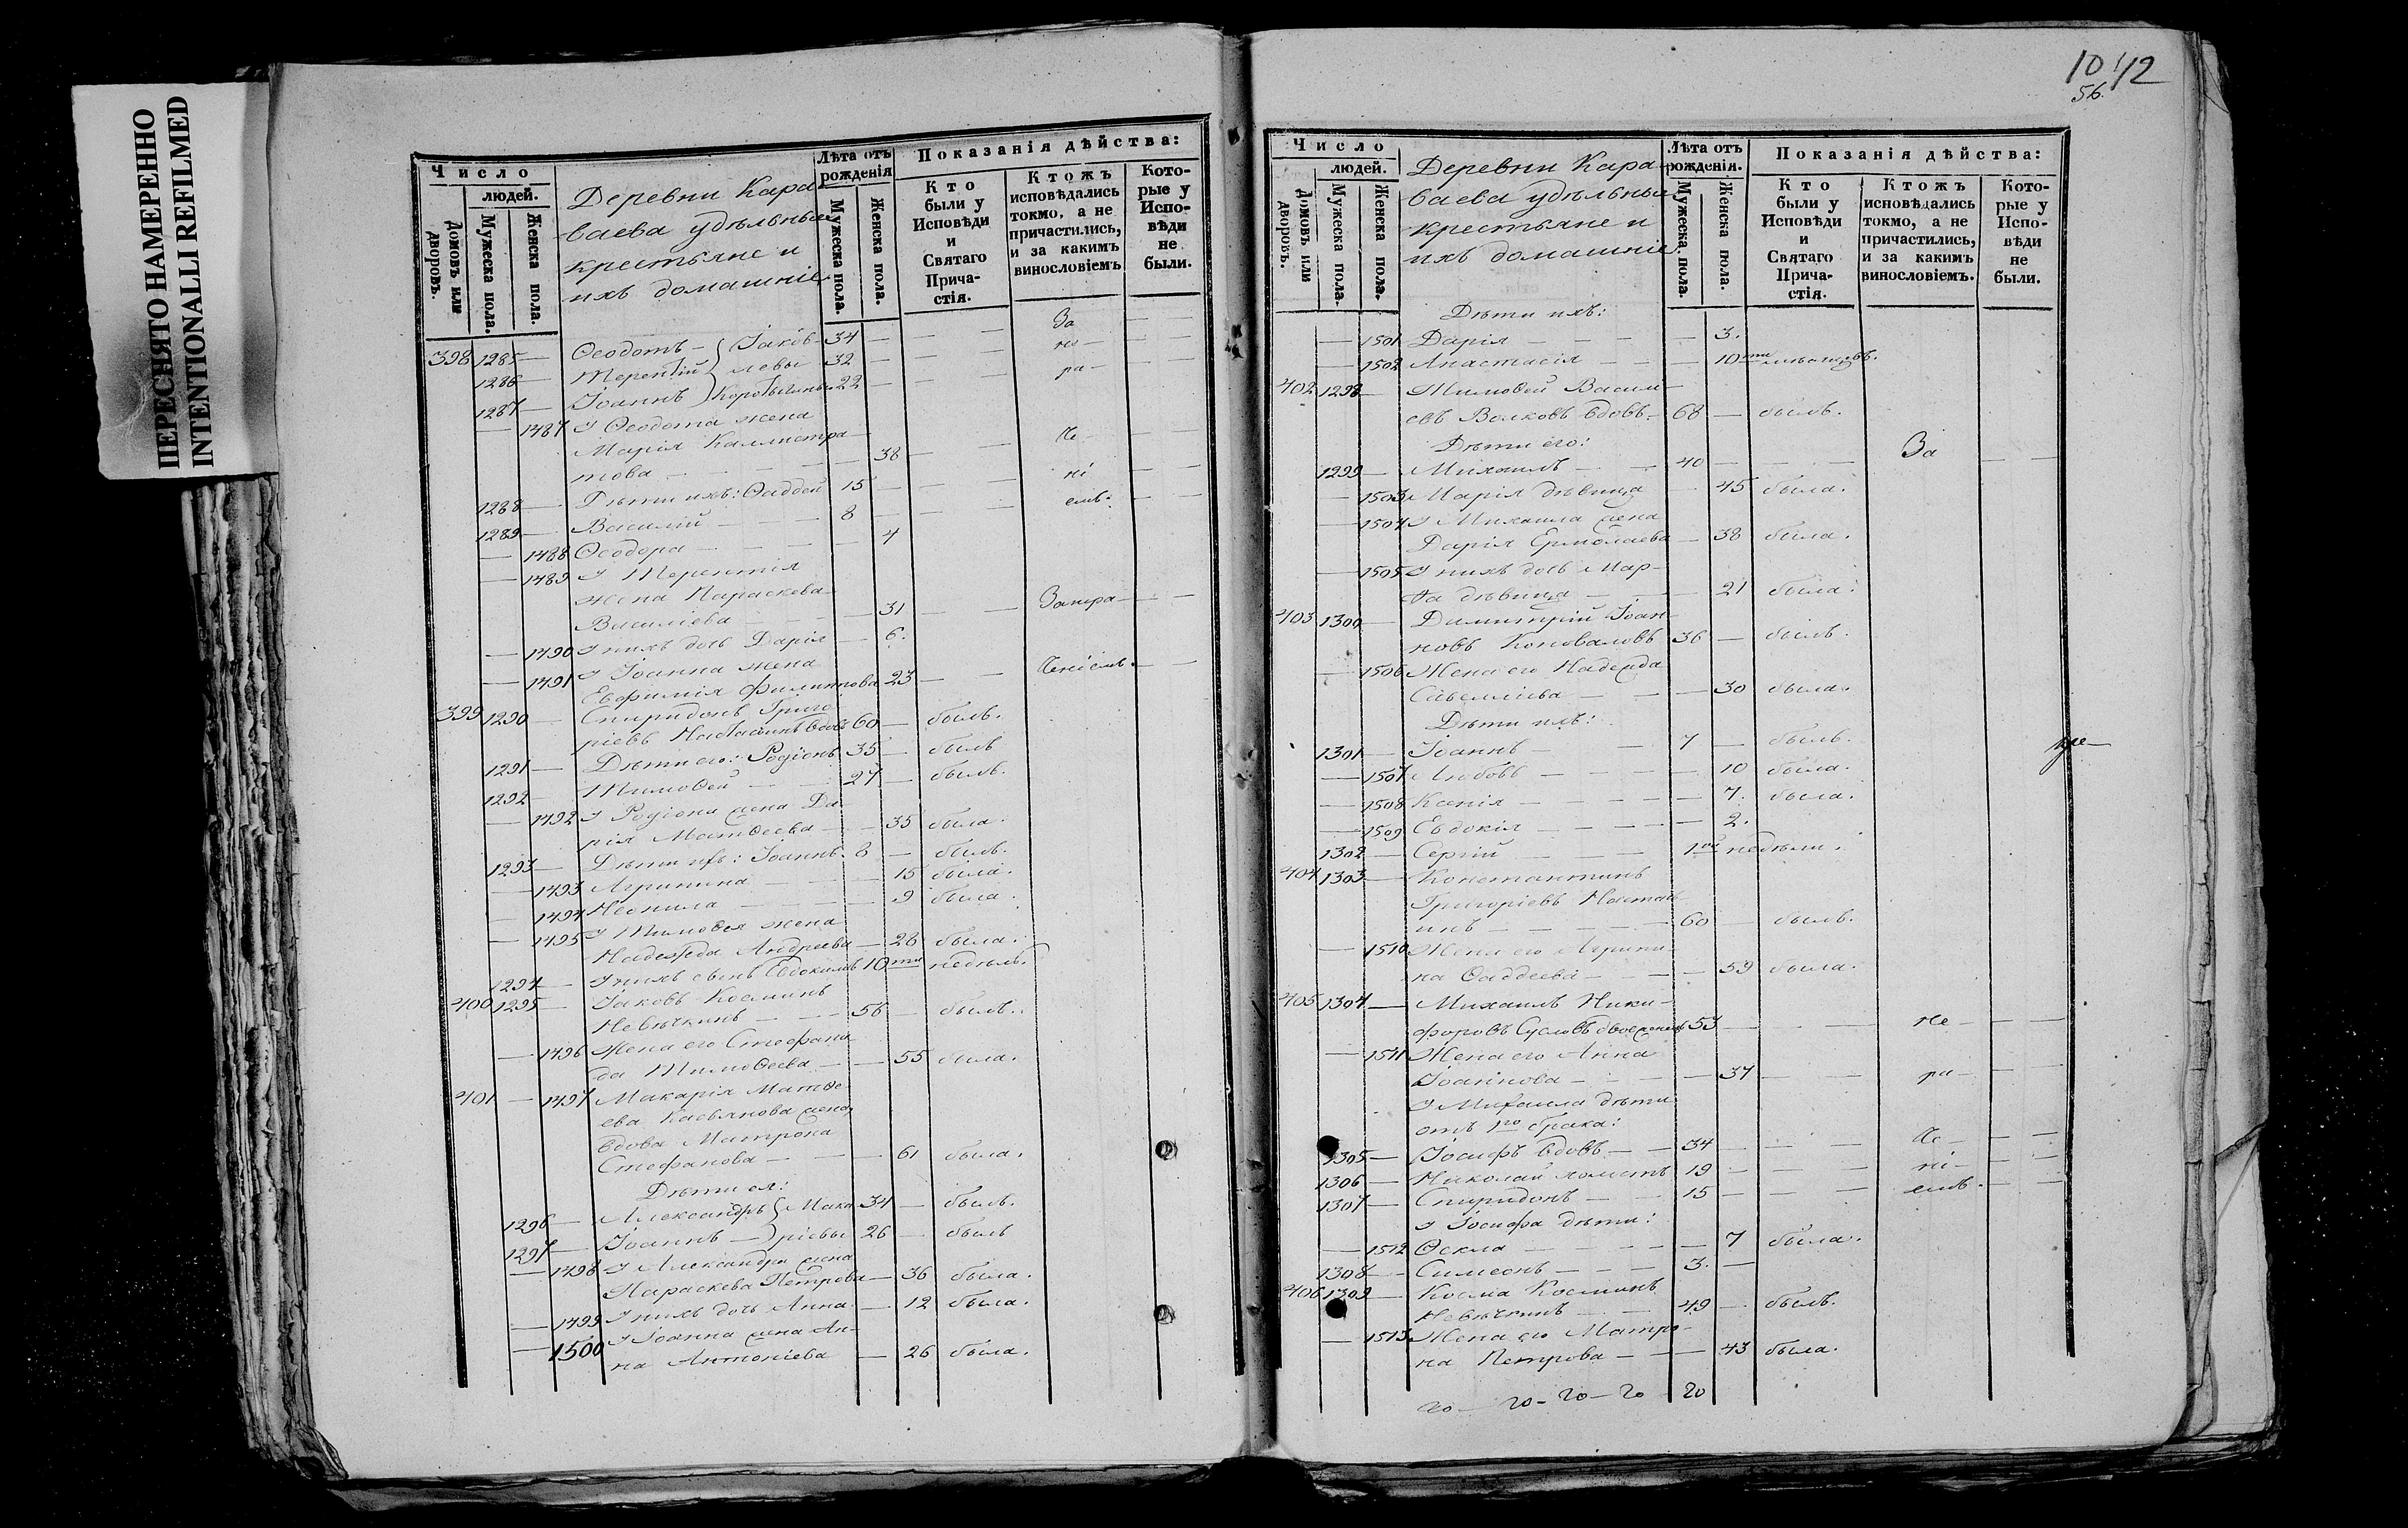 ПЕРЕСНЯТО НАМЕРЕННО
INTENTIONALLI REFILMED
Число
людей.
Домовъ или дворовъ.
Мужеска пола.
Женска пола.
Деревни Кара-
ваева удѣльные
крестьяне и
ихъ домашніе
Лѣта отъ рожденія
Мужеска пола.
Женска пола.
Показанія дѣйства:
Кто были у Исповѣди и Святаго Прича-стія.
Ктожъ исповѣдались токмо, а не причастились, и за какимъ винословіемъ
Кото-рые у Испо-вѣди не были.
398 1285 — Ѳеодотъ — Іаков- 34 — — За — —
1286 — Терентій левы 32 — — не —
1287 — Іоаннъ 22 — — ра —
— 1487 У Ѳеодота жена
Марія Каллистра-
това — — 38 — Че — —
1288 — Дѣти ихъ: Ѳаддей 15 — — ні — —
1289 — Василій — 8 — — емъ. — —
— 1488 Ѳеодора — — 4
— 1489 У Терентія
жена Параскева
Василіева — 31 — — Занера — —
— 1490 У нихъ дочь Дарія — 6.
— 1491 У Іоанна жена
Евфимія Филиппова 23 — — Ченіемъ. — —
399 1290 — Спиридонъ Григо-
ріевъ вдовъ 60 — былъ.
1291 — Дѣти его: Родіонъ 35 — былъ
1292 — Тимоѳей — 27 — былъ.
— 1492 У Родіона жена Да-
рія Матѳеева — 35 была.
1293 — Дѣти ихъ: Іоаннъ. 8 — былъ.
— 1493 Агрипина — — 15 была.
— 1494 Неонила — — 9 была.
— 1495 У Тимоѳея жена
Надежда Андреева — 28 была.
1294 — У нихъ сынъ Евдокимъ 10ти недѣль.
400 1295 — Іаковъ Косминъ
Невѣчкинъ — — 56 — былъ.
— 1496 Жена его Стефани-
да Тимоѳеева — — 55 была.
401 — 1497 Макарія Матѳе-
ева Касьянова жена
вдова Матрона
Стефанова — — 61 была.
Дѣти ея:
1296 — Александръ Мака- 34 — былъ.
1297 — Іоаннъ — ріевы 26 — былъ
— 1498 У Александра жена
Параскева Петрова — 36 была.
— 1499 У нихъ дочь Анна. — 12 была.
— 1500 У Іоанна жена Ан-
на Антоніева — 26 была.
10 42
56.
Число
людей.
Домовъ или дворовъ.
Мужеска пола.
Женска пола.
Деревни Кара-
ваева удѣльные
крестьяне и
ихъ домашніе
Лѣта отъ рожденія.
Мужеска пола.
Женска пола.
Показанія дѣйства:
Кто были у Исповѣди и Святаго Прича-стія.
Ктожъ исповѣдались токмо, а не причастились, и за какимъ винословіемъ.
Кото-рые у Испо-вѣди не были.
Дѣти ихъ:
— 1501 Дарія — — — — 3.
— 1502 Анастасія — — — 10ти мѣсяцевъ.
402 1298 — Тимоѳей Василі-
евъ Волковъ вдовъ — 68 — былъ.
Дѣти его:
1299 — Михаилъ — — 40 — — — За — —
— 1503 Марія дѣвица — 45 была.
— 1504 У Михаила жена
Дарія Ермолаева — 38 была.
— 1505 У нихъ дочь Мар-
ѳа дѣвица — — 21 была.
403 1300 — Димитрій Іоан-
новъ Коноваловъ 36 — былъ.
— 1506 Жена его Надежда
Савелліева — — — 30 была.
Дѣти ихъ:
1301 — Іоаннъ — — 7 — былъ.
— 1507 Любовь — — — 10 была.
— 1508 Ксенія — — — — 7. была.
— 1509 Евдокія — — — 2.
1302 — Сергій — — — 1ой недѣли.
404 1303 — Константинъ
Григоріевъ
инъ — — — 60 — былъ.
— 1510 Жена его Агрипи-
на Ѳаддеева — — — 59 была.
405 1304 — Михаилъ Ники-
форовъ Сусловъ двоеженецъ 53 — — — Не — —
— 1511 Жена его Анна
Іоаннова — — — 37 — — ра — —
У Михаила дѣти
отъ 1го брака:
1305 — Іосифъ вдовъ — — 34 — — — Че — —
1306 — Николай холостъ 19 — — — ні — —
1307 — Спиридонъ — — 15 — — — емъ. — —
У Іосифа дѣти:
— 1512 Ѳекла — — — — 7 была.
1308 — Симеонъ — — — 3. —
406 1309 — Косма Косминъ
Невѣчкинъ — — 49 — былъ.
— 1513 Жена его Матро-
на Петрова — — — 43 была.